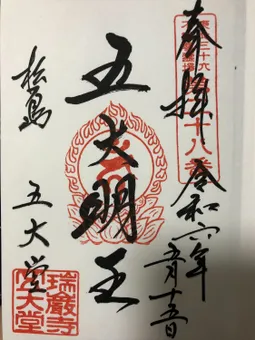 奉拝
十八番
令和六年
五月十五日
五大明王
松島
五大堂
瑞巌寺
五大堂